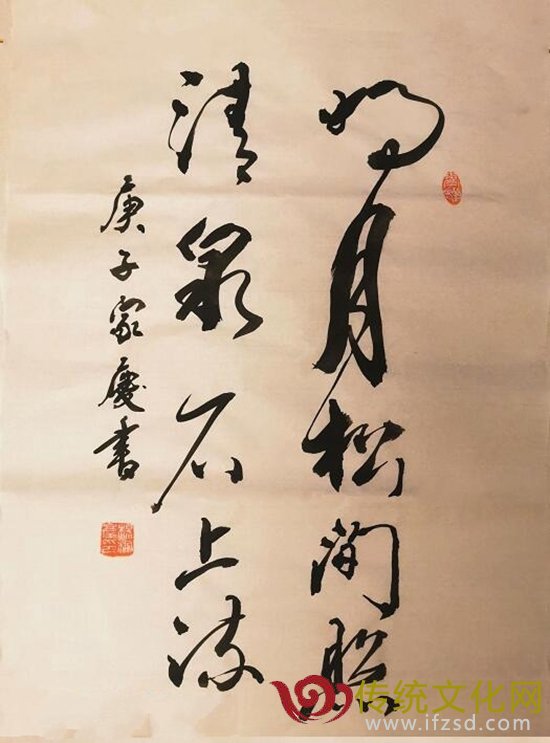 明月松间照
清泉石上流
庚子家庆书
传统文化网
www.ifzsd.com